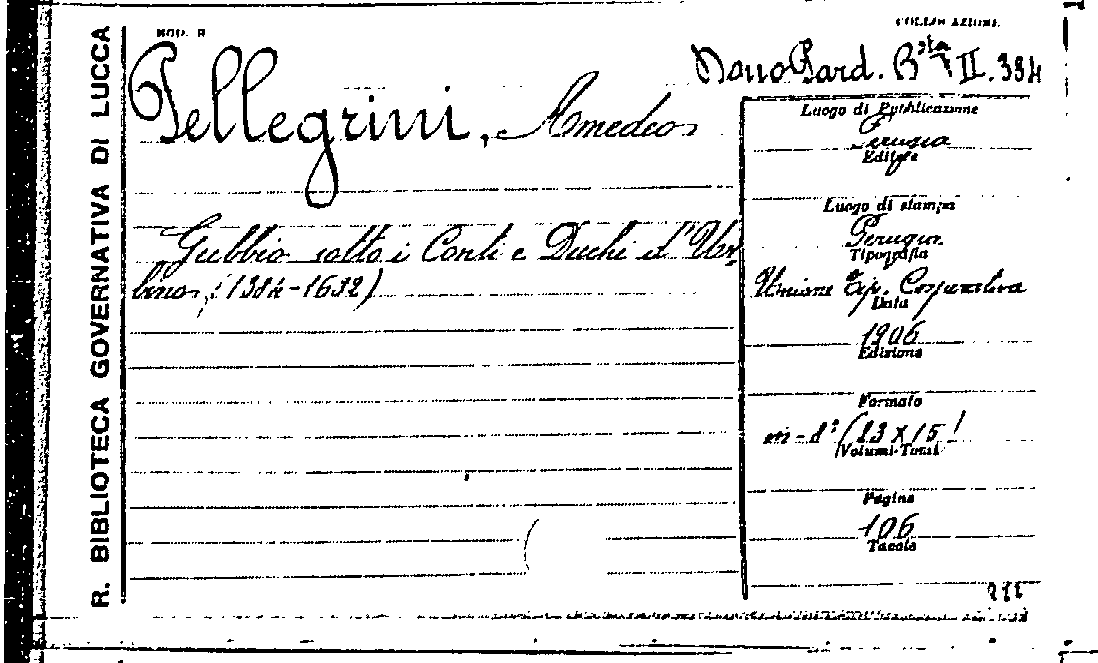 R. BIBLIOTECA GOVERNATIVA DI LUCCA
MOD. R
COLLOCAZIONE
Pellegrini, Amedeo
Gubbio sotto i Conti e Duchi d'Ur-
bino; (1384-1632)
Luogo di Pubblicazione
Perugia
Editore
Luogo di stampa
Perugia
Tipografia
Unione Tip. Cooperativa
Data
1906
Edizione
Formato
in-8°(23x15)
Volumi-Tomi
Pagine
106
Tavole